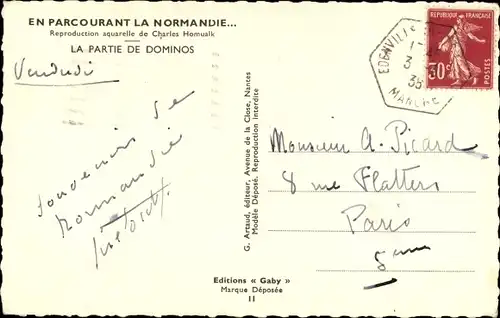 EN PARCOURANT LA NORMANDIE...
Reproduction aquarelle de Charles Homualk
LA PARTIE DE DOMINOS
Vendredi
Souvenirs de
Normandie
G. Artaud, éditeur, Avenue de la Close, Nantes
Modèle Déposé. Reproduction Interdite
REPUBLIQUE FRANÇAISE
30c
POSTES
EDENVILLE
35
MANCHE
Monsieur A. Picard
8 rue Flatters
Paris
5eme
Editions « Gaby »
Marque Déposée
11